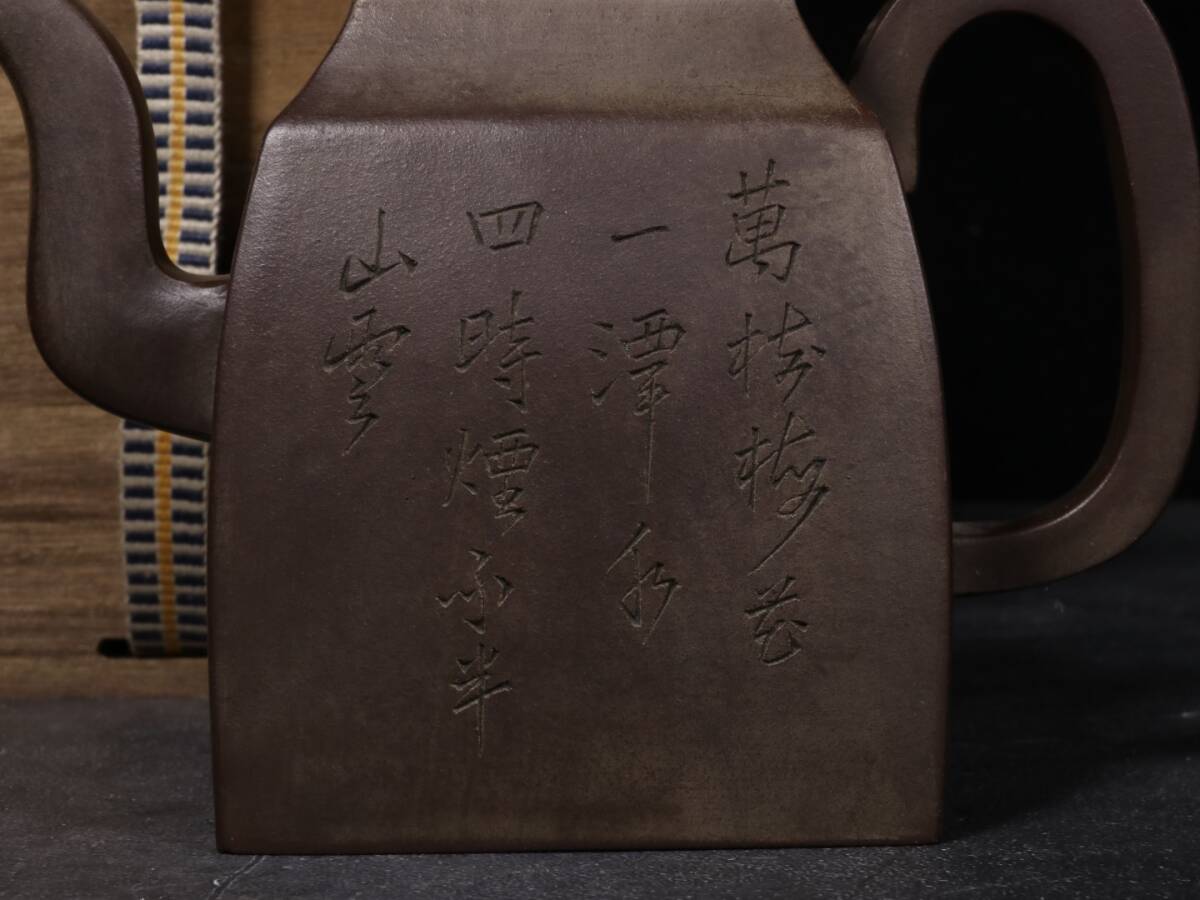 萬樹梅花
一潭水
四時煙雨半
山雲